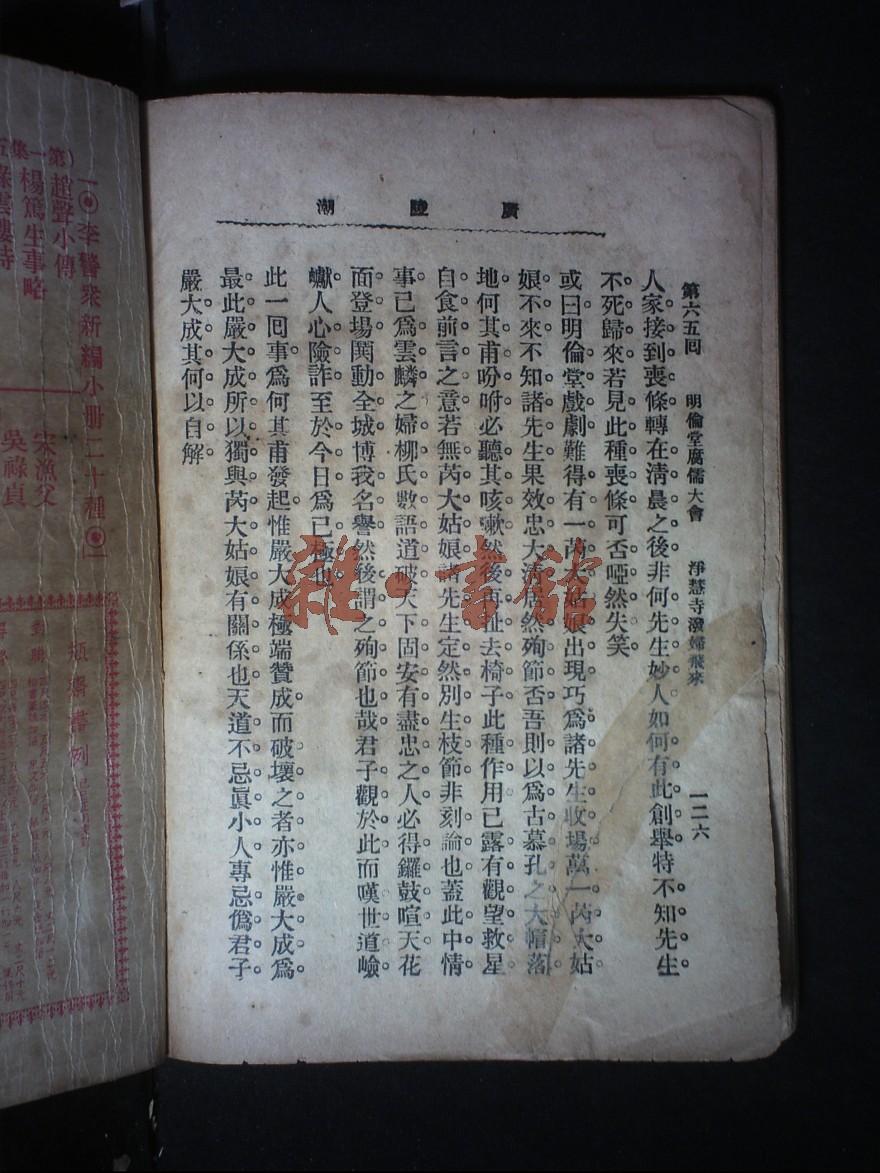 廣陵潮
第六五回 明倫堂腐儒大會 淨慧寺潑婦飛來 一二六
人家接到喪條轉在淸晨之後非何先生妙人如何有此創舉特不知先生
不死歸來若見此種喪條可否啞然失笑
或曰明倫堂戲劇難得有一芮大姑娘出現巧爲諸先生收場萬一芮大姑
娘不來不知諸先生果效忠大淸居然殉節否吾則以爲古慕孔之大帽落
地何其甫吩咐必聽其咳嗽然後再扯去椅子此種作用已露有觀望救星
自食前言之意若無芮大姑娘諸先生定然別生枝節非刻論也蓋此中情
事已爲雲麟之婦柳氏數語道破天下固安有盡忠之人必得鑼鼓喧天花
面登場鬨動全城博我名譽然後謂之殉節也哉君子觀於此而嘆世道嶮
巇人心險詐至於今日爲已極也
此一回事爲何其甫發起惟嚴大成極端贊成而破壞之者亦惟嚴大成爲
最此嚴大成所以獨與芮大姑娘有關係也天道不忌眞小人專忌僞君子
嚴大成其何以自解
雜·書館
李警衆新編小册二十種
第一集
趙聲小傳
楊篤生事略
宋漁父
吳祿貞
書例